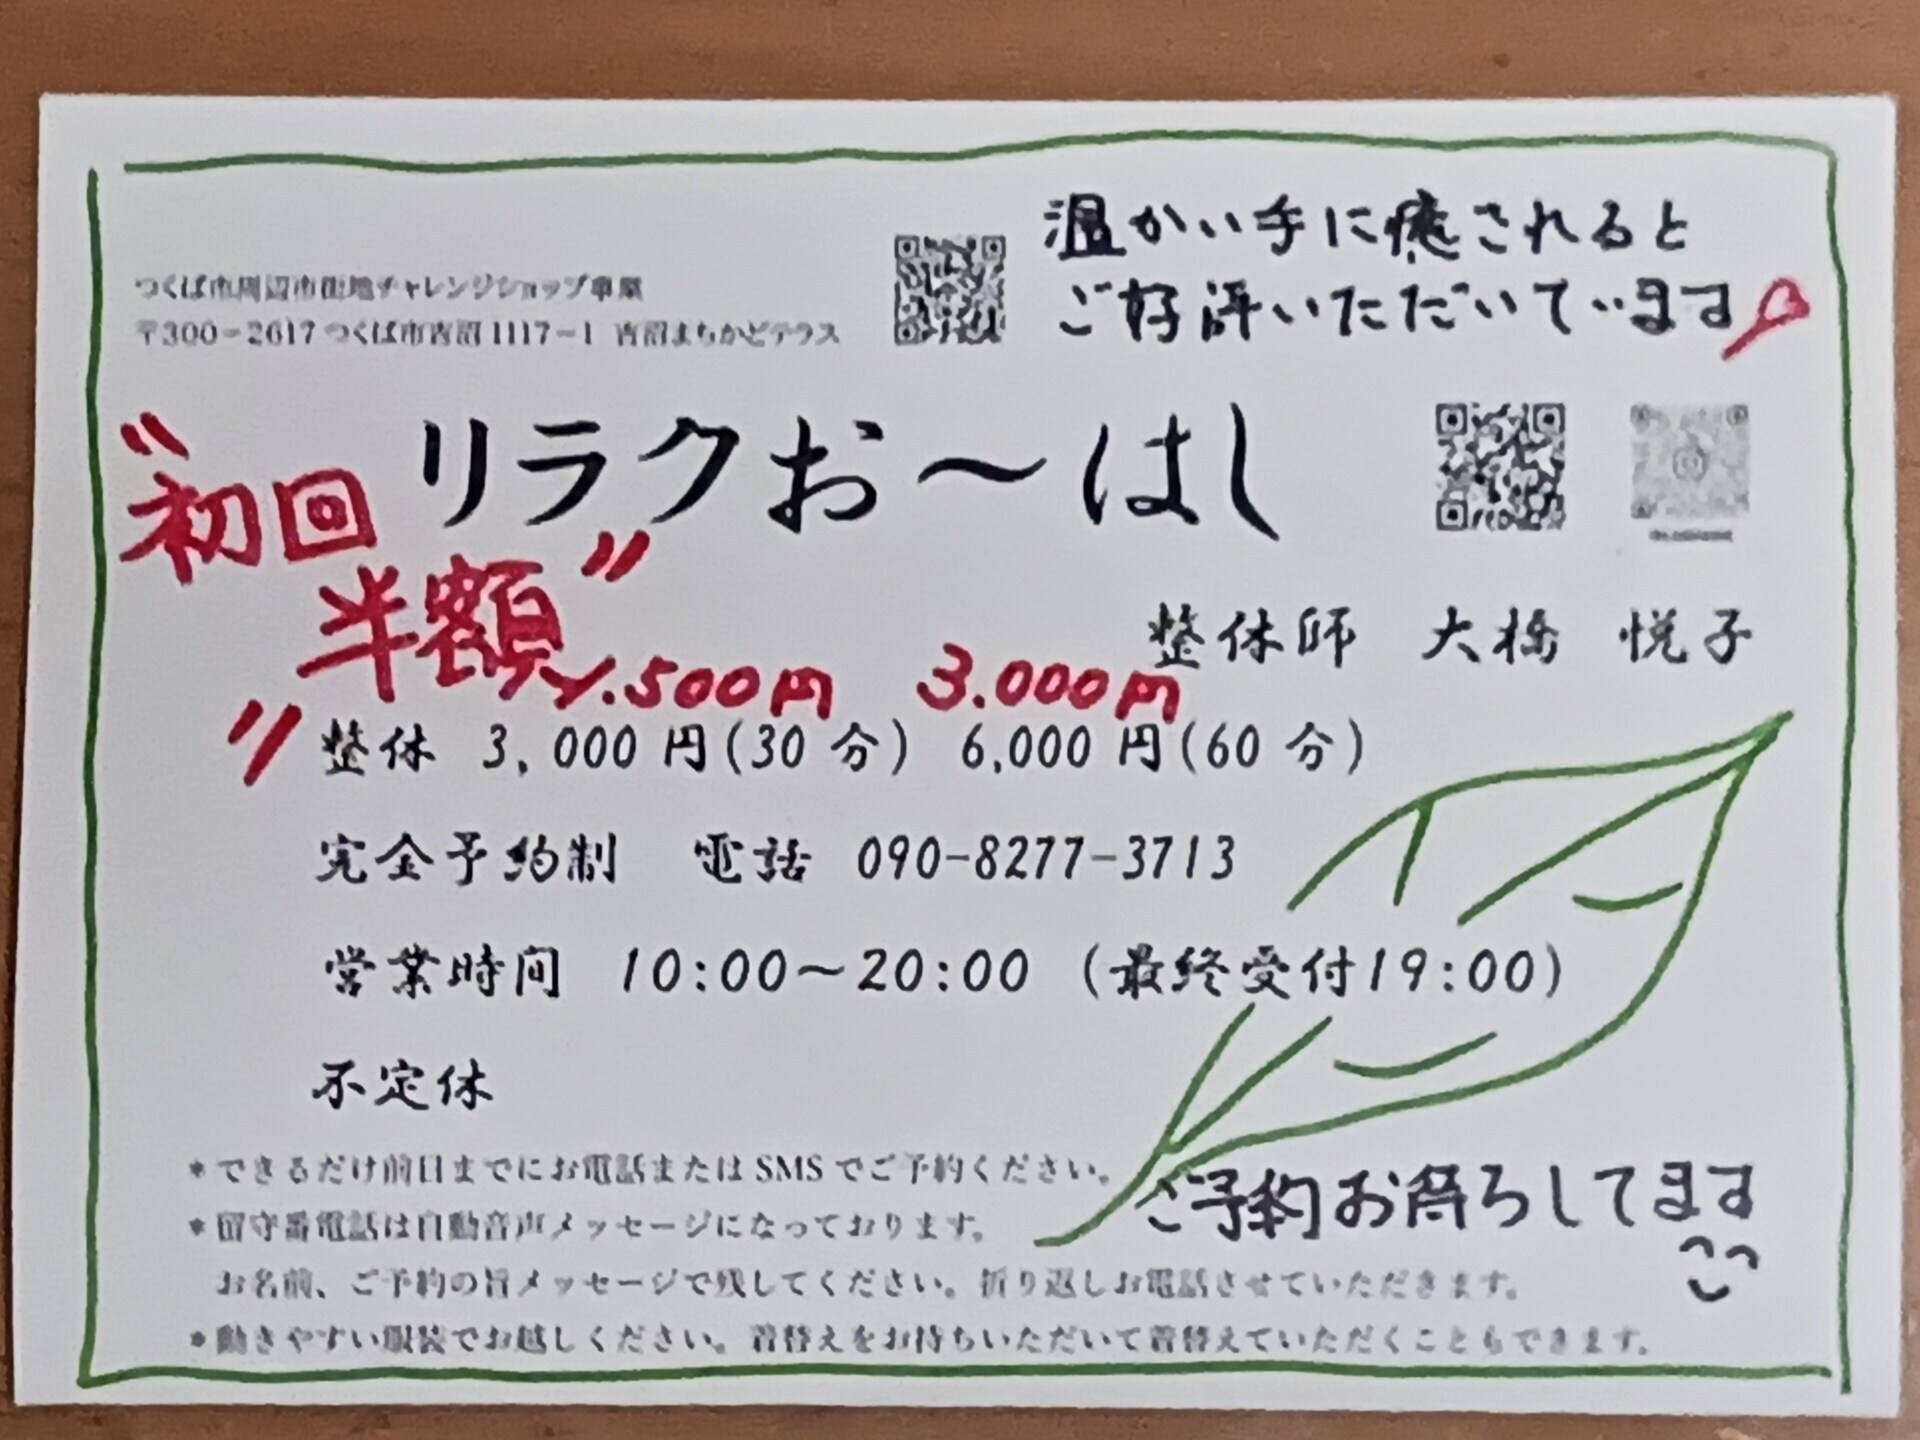 温かい手に癒されると
ご好評いただいています
つくば市周辺市街地チャレンジショップ事業
〒300-2617 つくば市吉沼1117-1 吉沼まちかどテラス
リラクお～はし
"初回
半額"
整体師 大橋 悦子
1.500円 3.000円
〃 整体 3,000円(30分) 6,000円(60分)
完全予約制 電話 090-8277-3713
営業時間 10:00～20:00 (最終受付19:00)
不定休
*できるだけ前日までにお電話またはSMSでご予約ください。
*留守番電話は自動音声メッセージになっております。
お名前、ご予約の旨メッセージで残してください。折り返しお電話させていただきます。
*動きやすい服装でお越しください。着替えをお持ちいただいて着替えていただくこともできます。
ご予約お待ちしてます